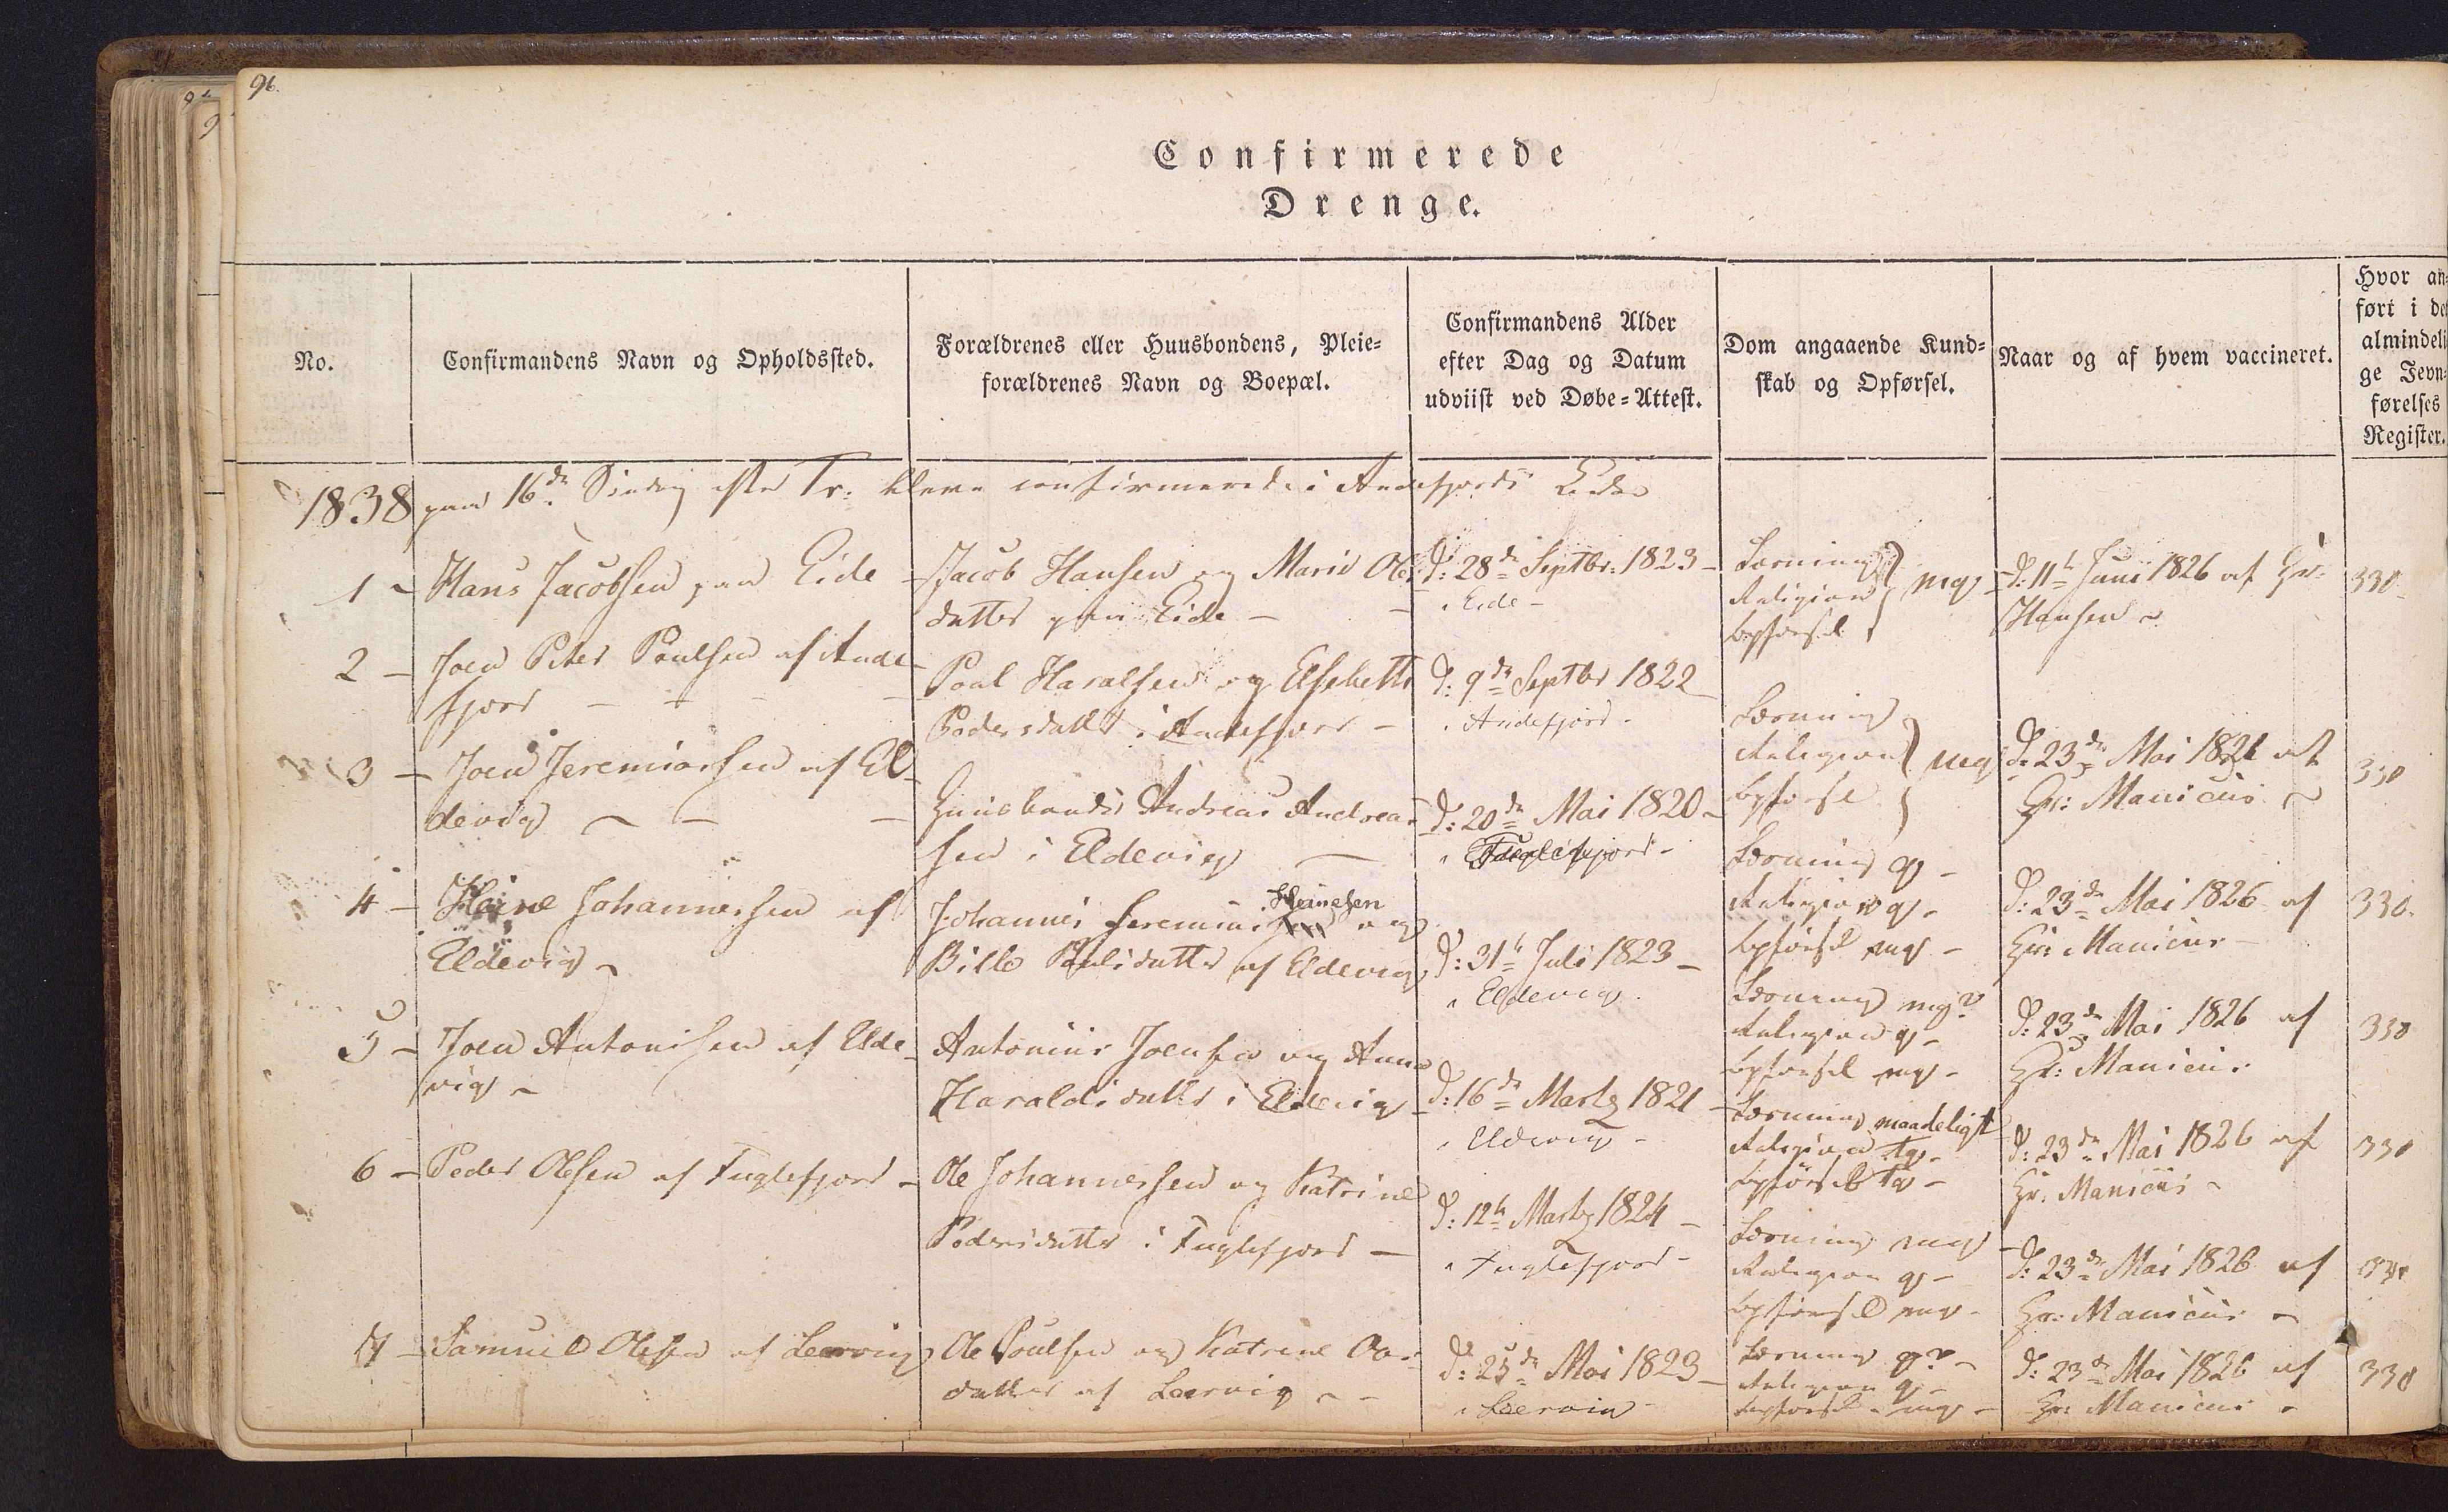 96.
Confirmerede
Drenge.
No.
Confirmandens Navn og Opholdssted.
Forældrenes eller Huusbondens, Pleie-
forældrenes Navn og Boepæl.
Confirmandens Alder
efter Dag og Datum
udviist ved Døbe-Attest.
Dom angaaende Kund-
skab og Opførsel.
Naar og af hvem vaccineret.
Hvor an-
ført i de
almindeli
ge Jevn-
førelses
Register.
1838 paa 16de Søndag efter Tr: bleve confirmerede i Andefjords Kirke
1 - Hans Jacobsen paa Eide -
Jacob Hansen og Marie Oles
datter paa Eide -
D: 28de Septbr: 1823 -
i Eide -
Læsning
Religion
Opførsel
mg -
D: 11te Juni 1826 af Hr:
Hansen -
330
2 - Joen Peter Poulsen af Ande-
fjord - - -
Poul Haralsen og Elsebeth
Pedersdatter i Andefjord -
D: 9de Septbr 1822
i Andefjord -
Læsning
Religion
Opførsel
mg
D: 23de Mai 1821 af
Hr: Manicus -
330
3 - Joen Jeremiassen af El-
devig - - -
Huusbonde Andreas Andreas
sen i Eldevig -
D: 20de Mai 1820 -
i Fuglefjord -
Læsning g -
Religion g -
Opførsel mg -
D: 23de Mai 1826 af
Hr: Manicus -
330.
4 - Heine Johannessen af
Eldevig -
Johannes Heinesen og
Bille Poulsdatter af Eldevig
D: 31te Juli 1823 -
i Eldevig.
Læsning mg?
Religion g -
Opførsel mg -
D: 23de Mai 1826 af
Hr: Manicus.
330
5 - Joen Antonisen af Elde-
vig -
Antonius Joensen og Anna
Haraldsdatter i Eldevig -
D: 16de Marts 1821 -
i Eldevig -
Læsning maadeligt
Religion tg -
Opførsel tg -
D: 23de Mai 1826 af
Hr: Manicus -
330
6 - Peder Olesen af Fuglefjord -
Ole Johannessen og Katrine
Pedersdatter i Fuglefjord -
D: 12te Marts 1824 -
i Fuglefjord -
Læsning mg -
Religion g -
Opførsel mg -
D: 23de Mai 1826 af
Hr: Manicus -
330
7 - Samuel Olesen af Leervig
Ole Poulsen og Katrine
datter af Leervig - -
D: 25de Mai 1823 -
i Leervig -
Læsning g? -
Religion g -
Opførsel mg -
D: 23de Mai 1826 af
Hr: Manicus -
330